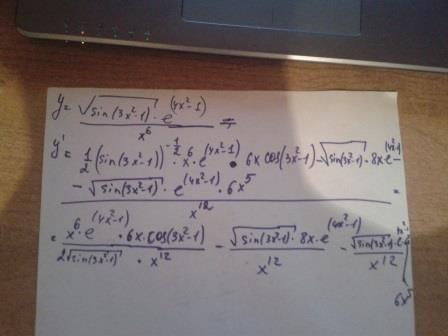 y = √sin(3x²-1) · e^(4x²-1) / x⁶ =
y' = 1/2 (sin(3x²-1))^(-1/2) · x⁶ · e^(4x²-1) · 6x cos(3x²-1) - √sin(3x²-1) · 8x · e^(4x²-1) -
- √sin(3x²-1) · e^(4x²-1) · 6x⁵ / x¹² =
= x⁶ · e^(4x²-1) · 6x · cos(3x²-1) / 2√sin(3x²-1) · x¹² - √sin(3x²-1) · 8x · e^(4x²-1) / x¹² - √sin(3x²-1) · e · 6x⁵ / x¹²